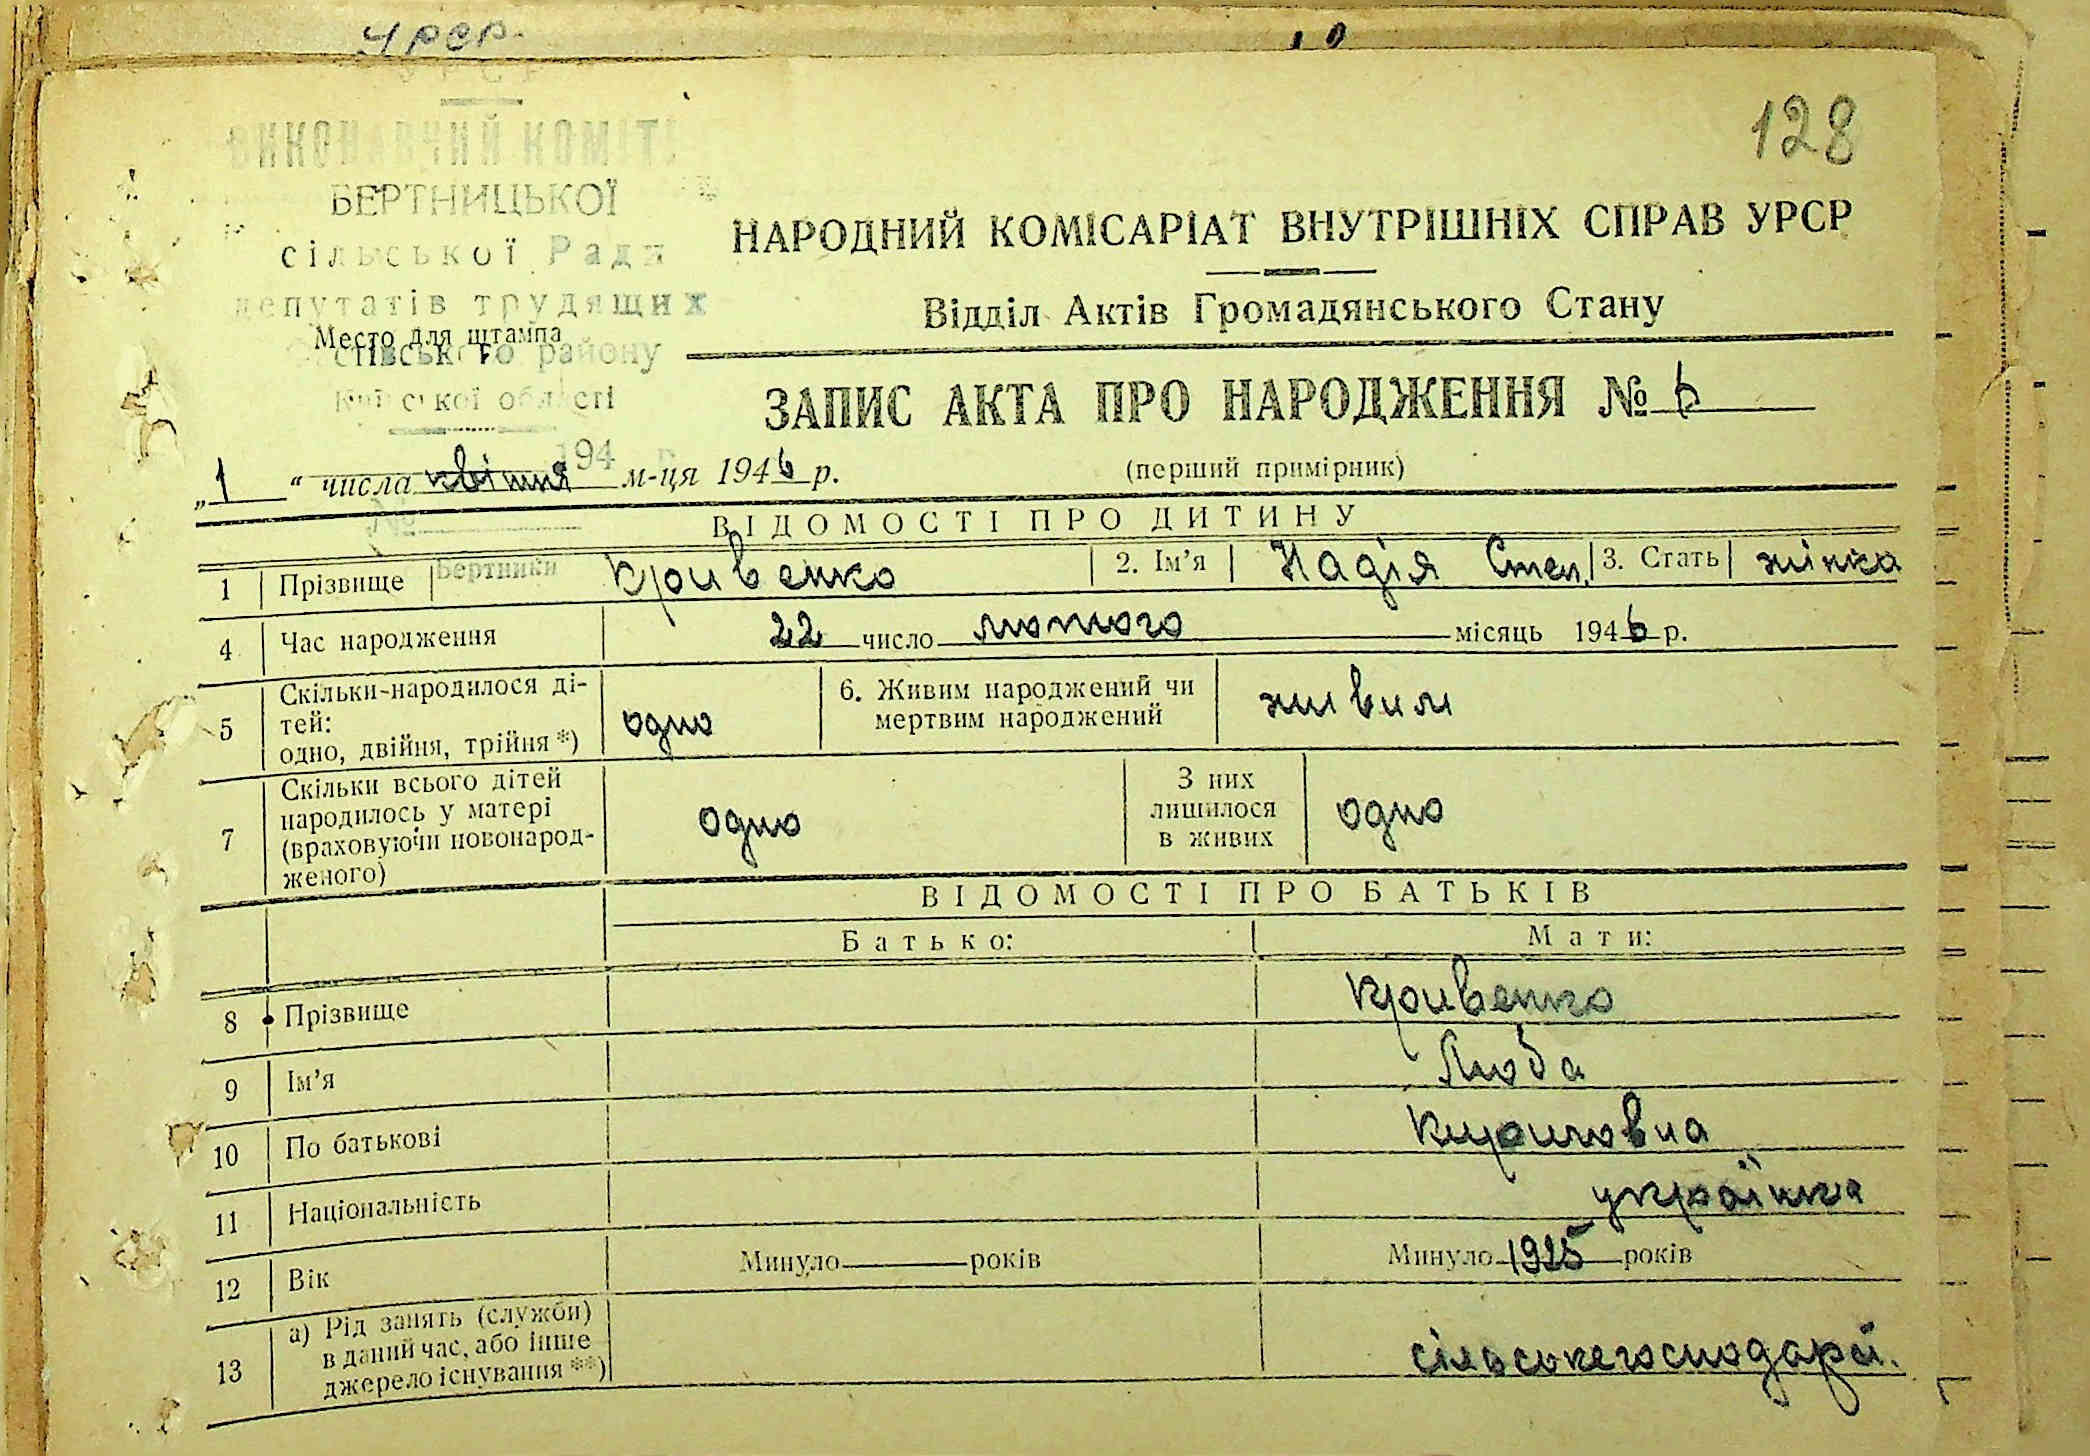 УРСР.
УРСР
128
ВИКОНАВЧИЙ КОМІТ
БЕРТНИЦЬКОЇ
сільської Ради
депутатів трудящих
Место для штампа
стівського району
Київської області
194 р
НАРОДНИЙ КОМІСАРІАТ ВНУТРІШНІХ СПРАВ УРСР
Відділ Актів Громадянського Стану
ЗАПИС АКТА ПРО НАРОДЖЕННЯ № 6
„1“ числа квітня м-ця 1946 р.
(перший примірник)
№
ВІДОМОСТІ ПРО ДИТИНУ
1 Прізвище Бертники Кривенко 2. Ім’я Надія Степ. 3. Стать жінка
4 Час народження 22 число лютого місяць 1946 р.
5 Скільки-народилося ді-
тей:
одно, двійня, трійня *)
одно
6. Живим народжений чи
мертвим народжений
живим
7 Скільки всього дітей
народилось у матері
(враховуючи новонарод-
женого)
одно
З них
лишилося
в живих
одно
ВІДОМОСТІ ПРО БАТЬКІВ
Батько: Мати:
8 Прізвище Кривенко
9 Ім’я Люба
10 По батькові Кириловна
11 Національність українка
12 Вік Минуло років Минуло 1925 років
13 а) Рід занять (служби)
в даний час, або інше
джерело існування **)